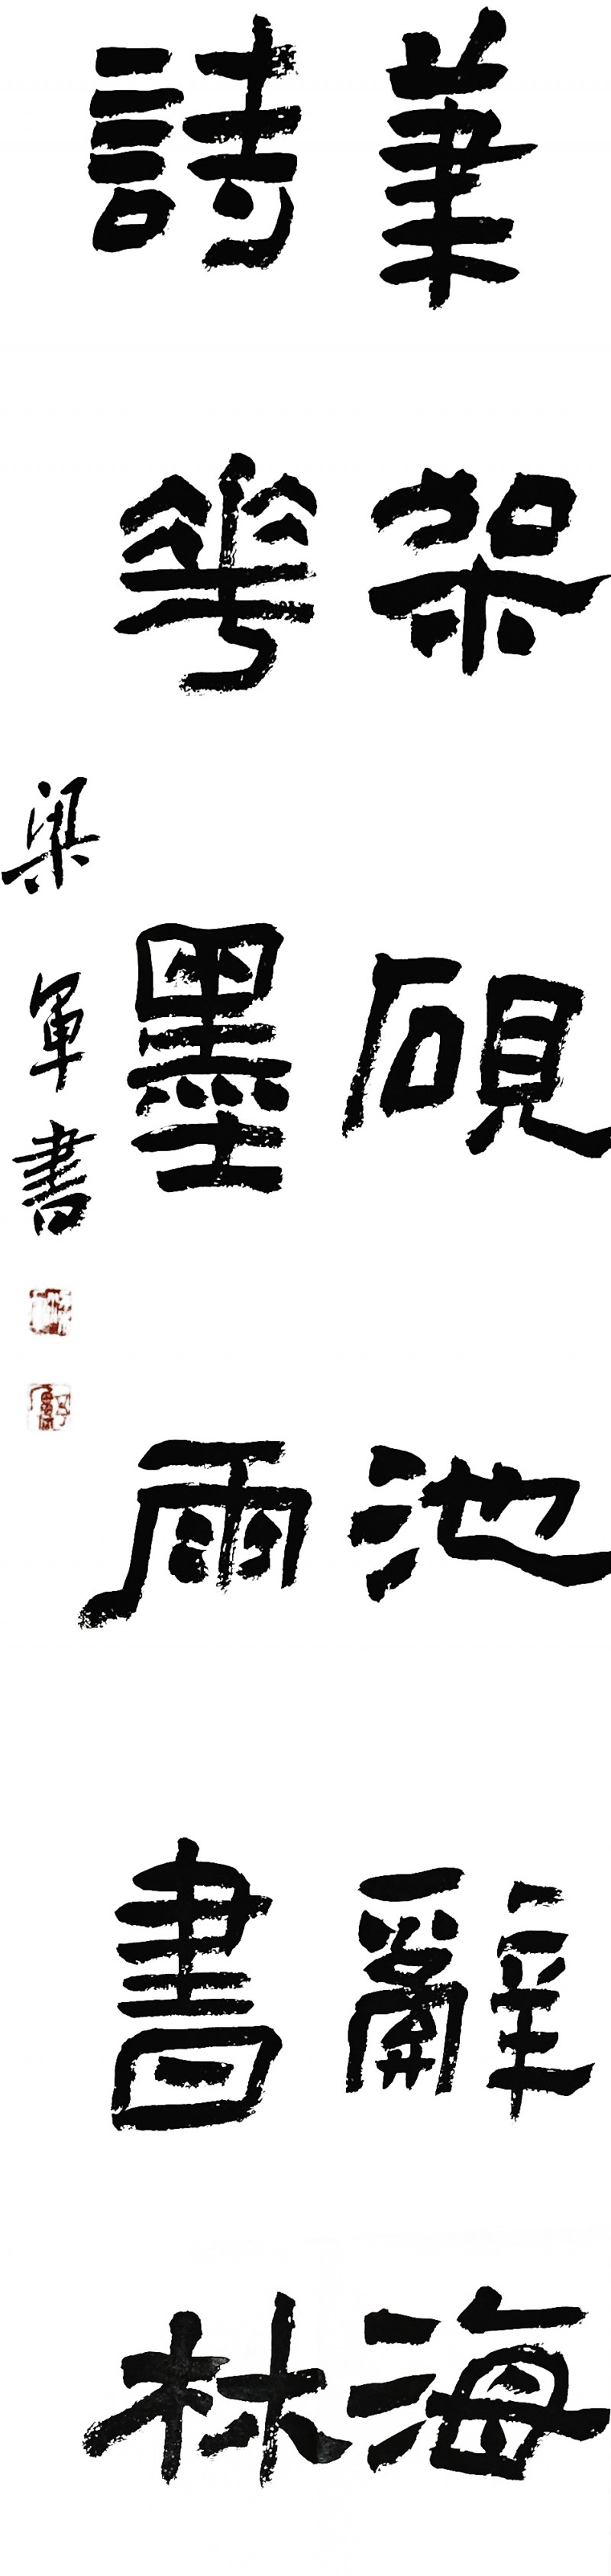 筆架硯池辭海
詩華墨雨書林
梁軍書